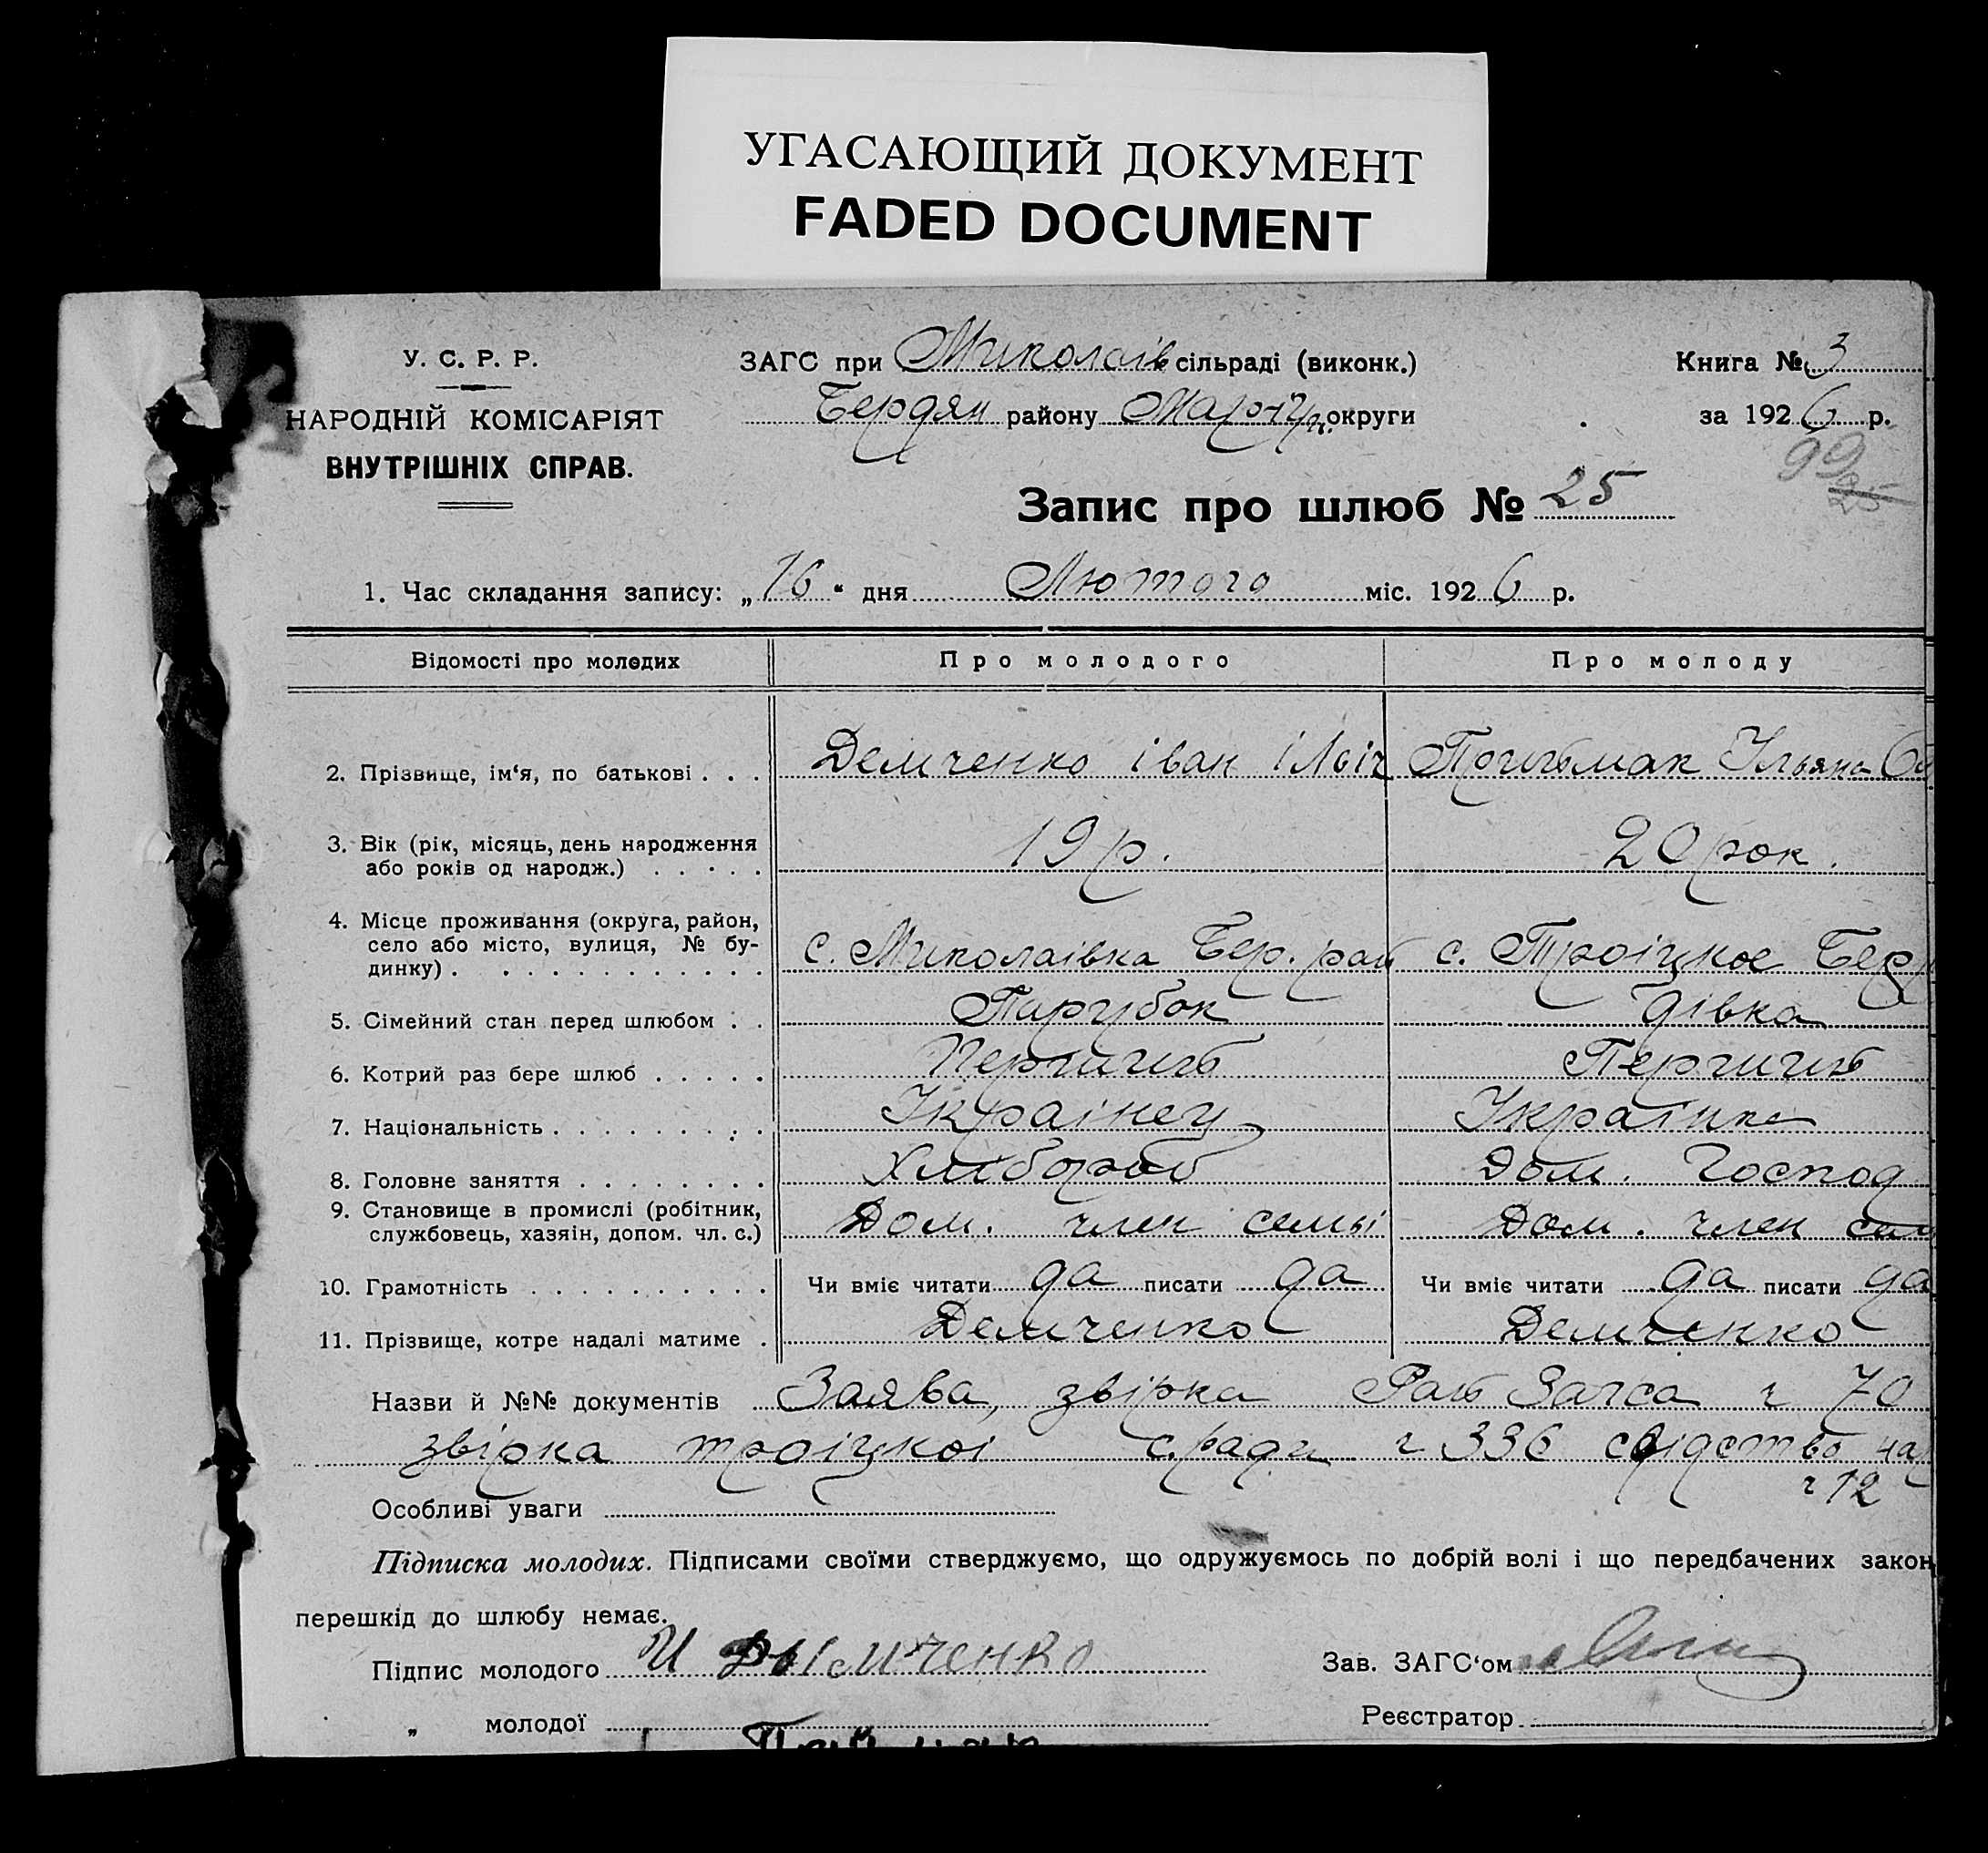 УГАСАЮЩИЙ ДОКУМЕНТ
FADED DOCUMENT
У. С. Р. Р.
НАРОДНІЙ КОМІСАРІЯТ
ВНУТРІШНІХ СПРАВ.
ЗАГС при Миколаів сільраді (виконк.)
Бердян району Маріуп. округи
Книга № 3
за 1926 р.
99
25
Запис про шлюб № 25
1. Час складання запису: „16“ дня Лютого міс. 1926 р.
Відомості про молодих
Про молодого
Про молоду
2. Прізвище, ім‘я, по батькові . . .
Демченко іван ілліч
Приймак Ульяна
3. Вік (рік, місяць, день народження
або років од народж.) . . . . .
19 р.
20 рок.
4. Місце проживання (округа, район,
село або місто, вулиця, № бу-
динку) . . . . . . . . . . . .
с. Миколаівка Бер. рай
с. Троіцкое Бер
5. Сімейний стан перед шлюбом . .
Парубок
дівка
6. Котрий раз бере шлюб . . . . .
Перший
Перший
7. Національність . . . . . . . . .
Українец
Українка
8. Головне заняття . . . . . . . .
Хлібороб
Дом. Господ
9. Становище в промислі (робітник,
службовець, хазяін, допом. чл. с.)
Дом. член семьі
Дом. член сем
10. Грамотність . . . . . . . . . . .
Чи вміє читати да писати да
Чи вміє читати да писати да
11. Прізвище, котре надалі матиме .
Демченко
Демченко
Назви й №№ документів Заява, звірка Рай Загса ч 70
звірка троіцкоі с.ради ч 336 свідство
ч 12
Особливі уваги
Підписка молодих. Підписами своїми стверджуємо, що одружуємось по добрій волі і що передбачених закон
перешкід до шлюбу немає.
Підпис молодого И Дымченко
Зав. ЗАГС‘ом
„ молодої
Реєстратор